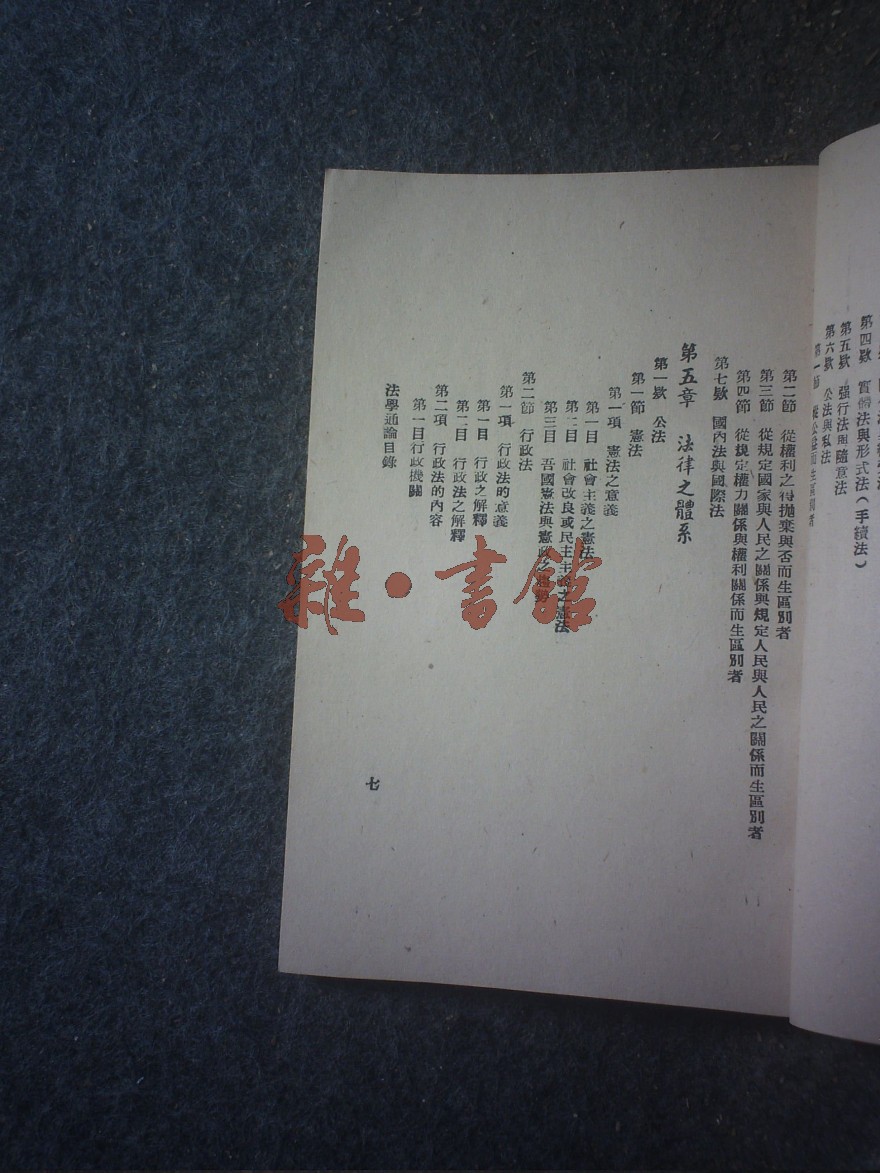 第四欵 實體法與形式法(手續法)
第五欵 强行法與隨意法
第六欵 公法與私法
第二節 從權利之得抛棄與否而生區别者
第三節 從規定國家與人民之關係與規定人民與人民之關係而生區别者
第四節 從規定權力關係與權利關係而生區别者
第七欵 國內法與國際法
第五章 法律之體系
第一欵 公法
第一節 憲法
第一項 憲法之意義
第一目 社會主義之憲法
第二目 社會改良或民主主義之憲法
第三目 吾國憲法與憲政之
第二節 行政法
第一項 行政法的意義
第一目 行政之解釋
第二目 行政法之解釋
第二項 行政法的內容
第一目行政機關
法學通論目錄
七
雜·書館